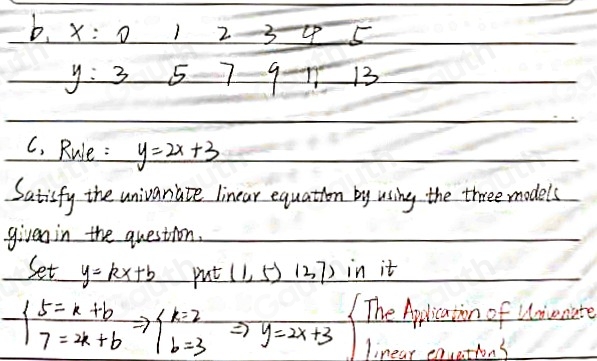 b. x: 0 1 2 3 4 5
y: 3 5 7 9 11 13
C. Rule: y=2x+3
Satisfy the univariate linear equation by using the three models
given in the question.
Set y=kx+b put (1,5) (2,7) in it
{ 5=k+b ⇒ { k=2 ⇒ y=2x+3 { The Application of Univariate
7=2k+b b=3 linear equation}